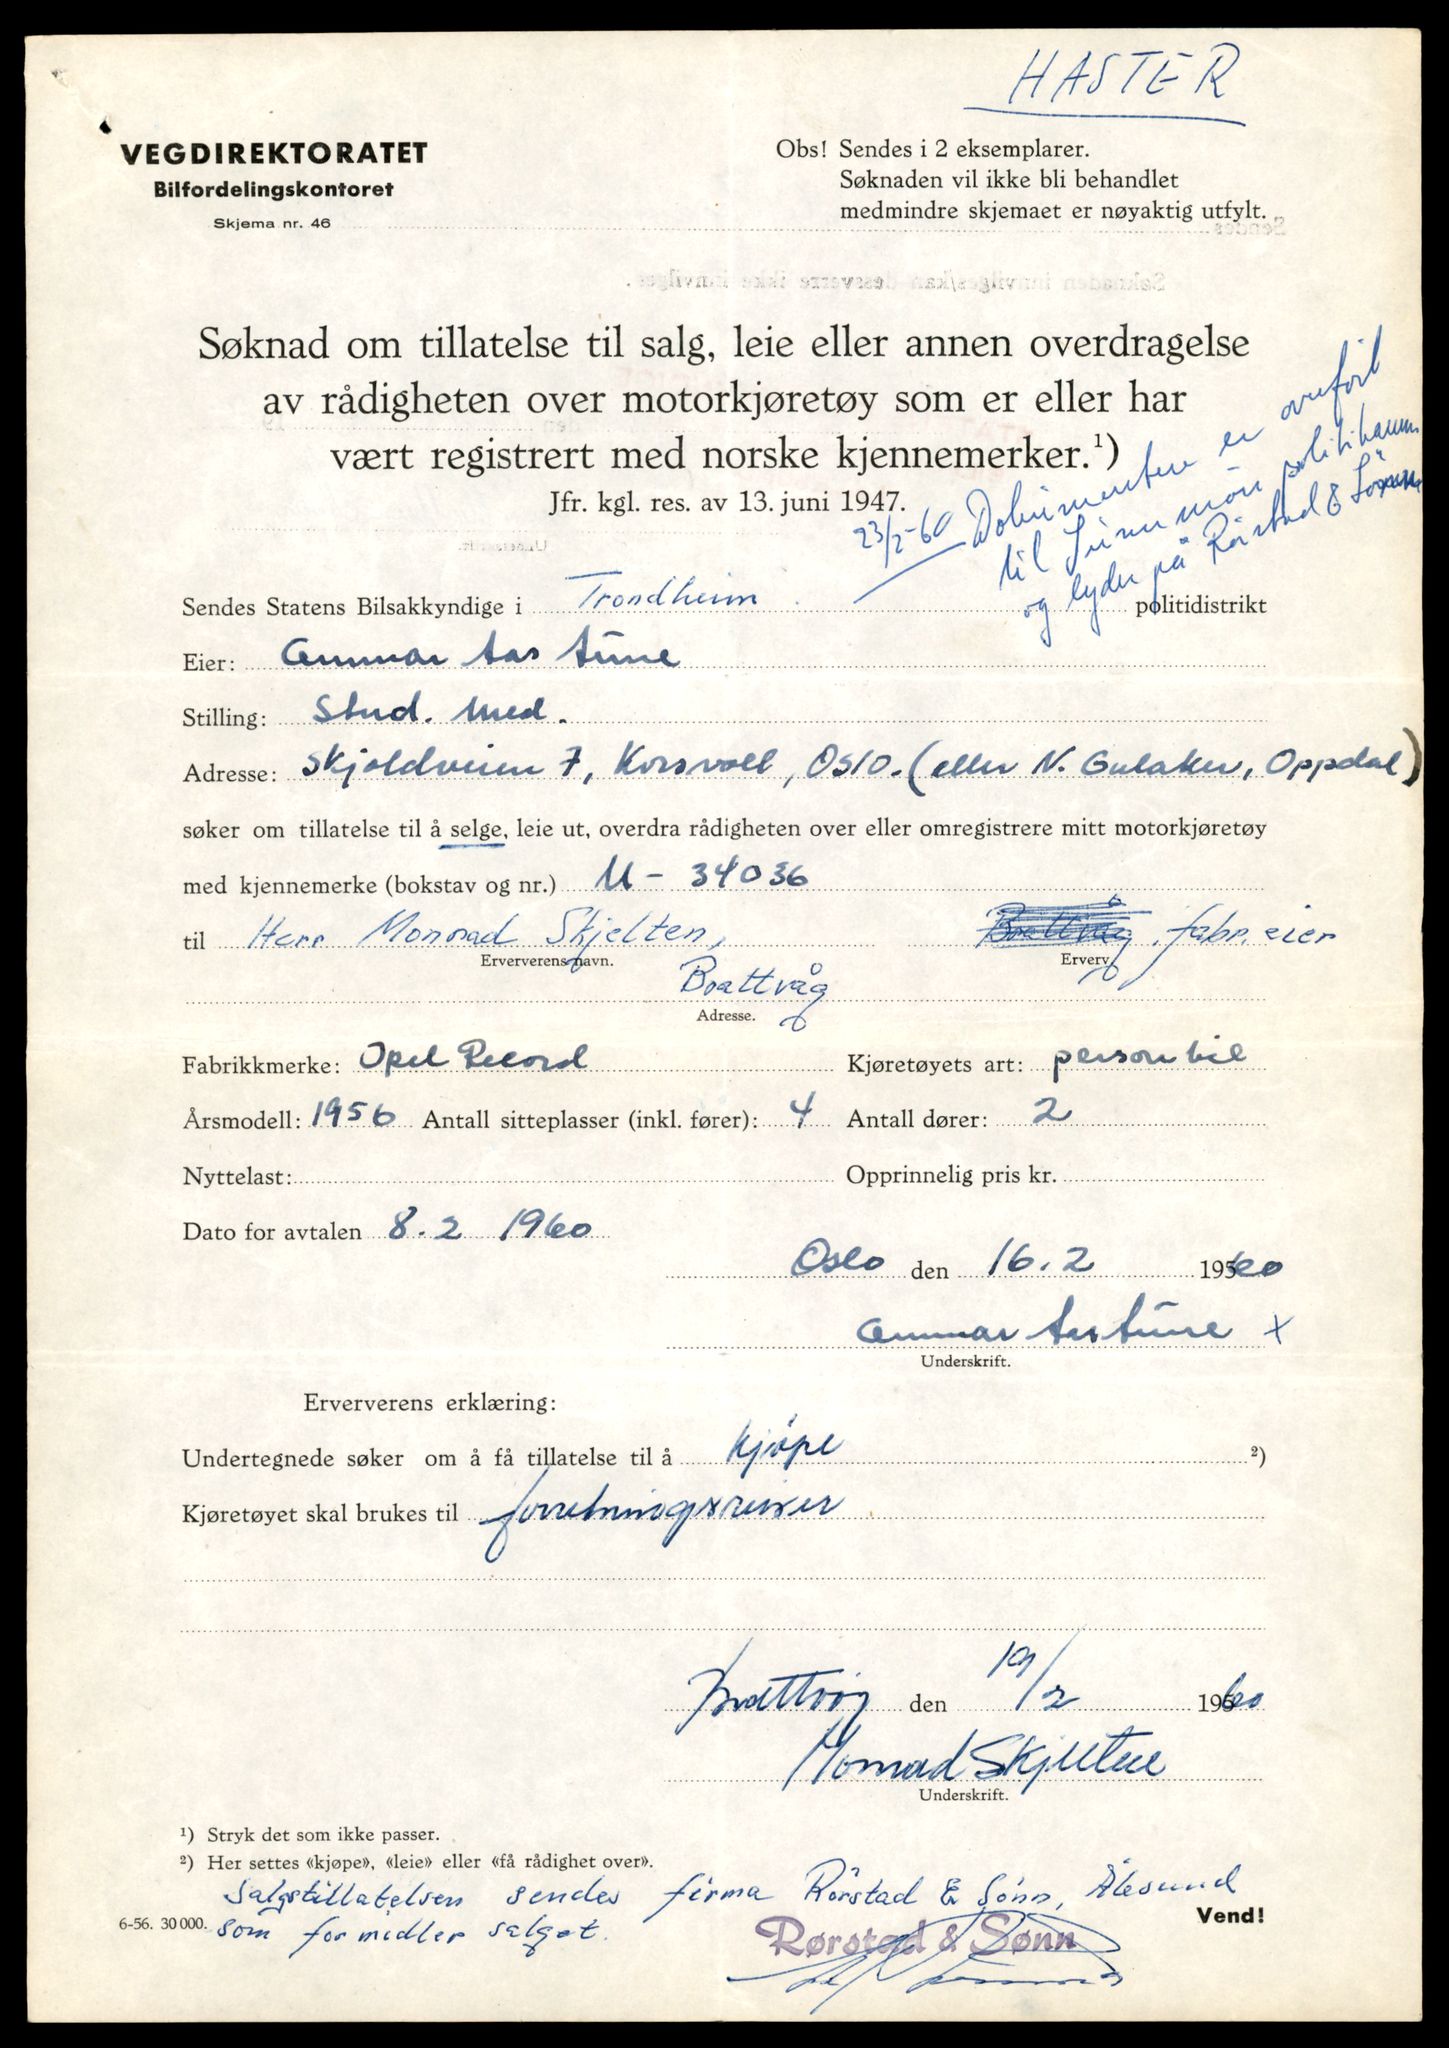 HASTER
VEGDIREKTORATET
Bilfordelingskontoret
Skjema nr. 46
Obs! Sendes i 2 eksemplarer.
Søknaden vil ikke bli behandlet
medmindre skjemaet er nøyaktig utfylt.
Søknad om tillatelse til salg, leie eller annen overdragelse
av rådigheten over motorkjøretøy som er eller har
vært registrert med norske kjennemerker.¹)
Jfr. kgl. res. av 13. juni 1947.
23/2-60 Dokumentene er overført
til politikamm
og lyder på Rörstad & Sönn
Sendes Statens Bilsakkyndige i Trondheim politidistrikt
Eier: Aas Aune
Stilling: Stud. Med.
Adresse: Skjoldveien 7, Korsvoll, Oslo. (eller N. Gulaker, Oppdal)
søker om tillatelse til å selge, leie ut, overdra rådigheten over eller omregistrere mitt motorkjøretøy
med kjennemerke (bokstav og nr.) U - 34036
til Herr Monrad Skjelten, Brattvåg fabr. eier
Erververens navn. Erverv
Brattvåg
Adresse.
Fabrikkmerke: Opel Record Kjøretøyets art: personbil
Årsmodell: 1956 Antall sitteplasser (inkl. fører): 4 Antall dører: 2
Nyttelast: Opprinnelig pris kr.
Dato for avtalen 8.2 1960
Oslo den 16.2 1960
Aas Aune x
Underskrift.
Erververens erklæring:
Undertegnede søker om å få tillatelse til å kjöpe ²)
Kjøretøyet skal brukes til forretningsreiser
Brattvåg den 19/2 1960
Monrad Skjelten
Underskrift.
¹) Stryk det som ikke passer.
²) Her settes «kjøpe», «leie» eller «få rådighet over».
Salgstillatelsen sendes firma Rörstad & Sönn, Ålesund
som formidler salget.
6-56. 30 000.
Vend!
Rørstad & Sønn